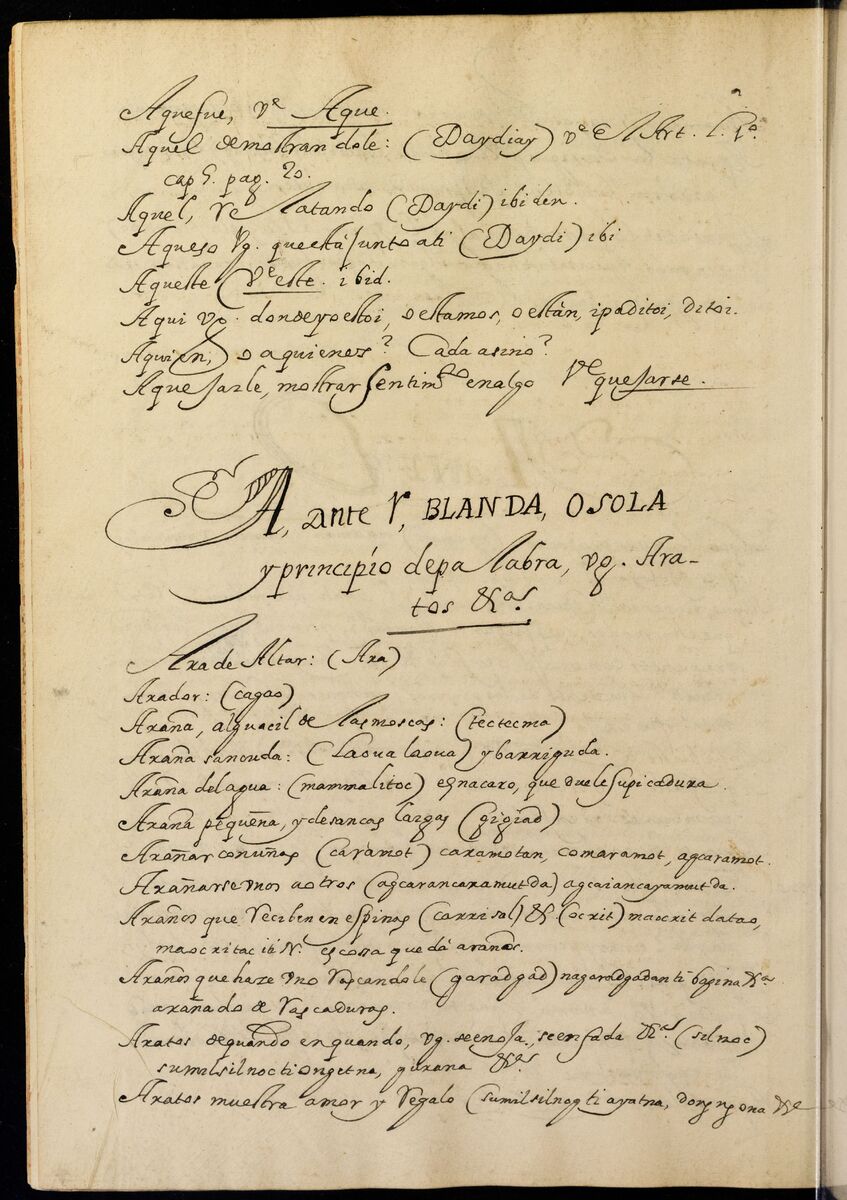 Aquesue, vᵉ Aque.
Aquel demostrandole: (Daydiay) vᵉ el Art. l. 1º.
cap 5. pag. 20.
Aquel, relatando (Daydi) ibiden.
Aqueso vg. que està junto a ti (Daydi) ibi
Aqueste (vᵉ este. ibid.
Aqui vg. donde yo estoi, o estamos, o estàn, ipaditoi, ditoi.
Aquien, o aquienes? Cadaasino?
Aquejarse, mostrar sentimᵗᵒ en algo vᵉ quejarse.
A, ante r, BLANDA, O SOLA
y principío de palabra, vg. Ara-
tos &ᵃˢ.
Ara de Altar: (Ara)
Arador: (cagao)
Araña, alguacil de las moscas: (tectecma)
Araña sancuda: (Laoua laoua) y barriguda.
Araña del agua: (mammalitoc) es nacaro, que duele su picadura.
Araña pequeña, y de sancas largas (gigiad)
Arañar con uñas (caràmot) caramotan, comaramot, agcaramot.
Arañarse unos a otros (agcarancaramutda) agcaiancayamutda.
Araños que reciben en espinas (carrisal) & (ocrit) maocrit datao,
maocritac iti N. es cosa que dà araños.
Araños que haze uno rascandole (garadgad) nagaradgadanti bagina &ᵃ
arañado de rascaduras.
Aratos de quando en quando, vg. se enoja, se enfada &ᵃˢ (silnoc)
sumilsilnoc ti ongetna, gurana &ᵃˢ
Aratos muestra amor y regalo (sumilsilnog ti ayatna,